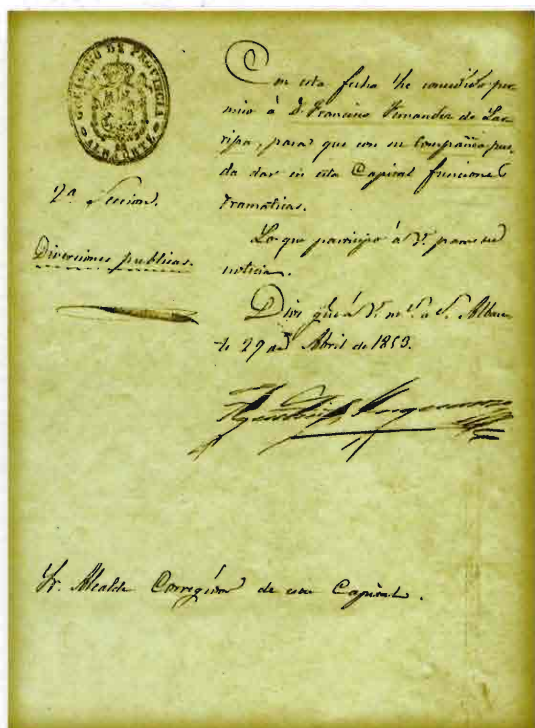 GOBIERNO DE PROVINCIA
ALBACETE
2ª Seccion.
Diversiones publicas.
Con esta fecha he concedido per-
miso á D. Francisco Fernandez de La-
ripa, para que con su Compañia pue-
da dar en esta Capital funciones
dramáticas.
Lo que participo á V. para su
noticia.
Dios gue á V. ms. as. Albace-
te 29 de Abril de 1853.
Sr. Alcalde Corregidor de esta Capital.